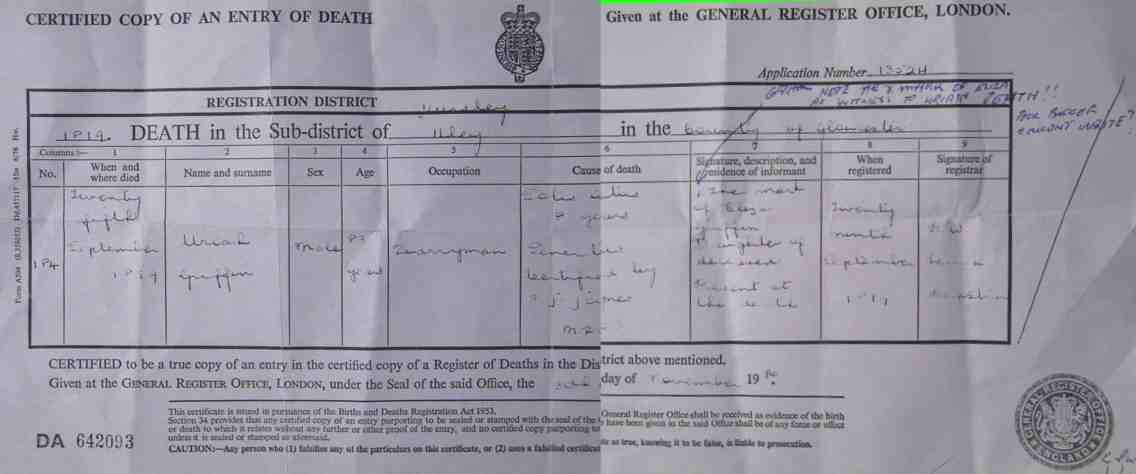 CERTIFIED COPY OF AN ENTRY OF DEATH
Given at the GENERAL REGISTER OFFICE, LONDON.
Application Number 1322H
NOTE THE X MARK OF ELIZA
AS WITNESS TO URIAH DEATH!!
REGISTRATION DISTRICT Dursley
DEATH in the Sub-district of Uley in the County of Gloucester
Columns:— 1 2 3 4 5 6 7 8 9
No.
When and where died
Name and surname
Sex
Age
Occupation
Cause of death
Signature, description, and residence of informant
When registered
Signature of registrar
184
Twenty
fifth
September
Uriah
Griffin
Male
years
Quarryman
years
Certified by
The mark
of Eliza
Griffin
deceased
Present at
the death
Twenty
ninth
September
CERTIFIED to be a true copy of an entry in the certified copy of a Register of Deaths in the District above mentioned.
Given at the GENERAL REGISTER OFFICE, LONDON, under the Seal of the said Office, the day of November 19
This certificate is issued in pursuance of the Births and Deaths Registration Act 1953.
Section 34 provides that any certified copy of an entry purporting to be sealed or stamped with the seal of the General Register Office shall be received as evidence of the birth
or death to which it relates without any further or other proof of the entry, and no certified copy purporting to have been given in the said Office shall be of any force or effect
unless it is sealed or stamped as aforesaid.
CAUTION:—Any person who (1) falsifies any of the particulars on this certificate, or (2) uses a falsified certificate as true, knowing it to be false, is liable to prosecution.
DA 642093
GENERAL REGISTER OFFICE
ENGLAND